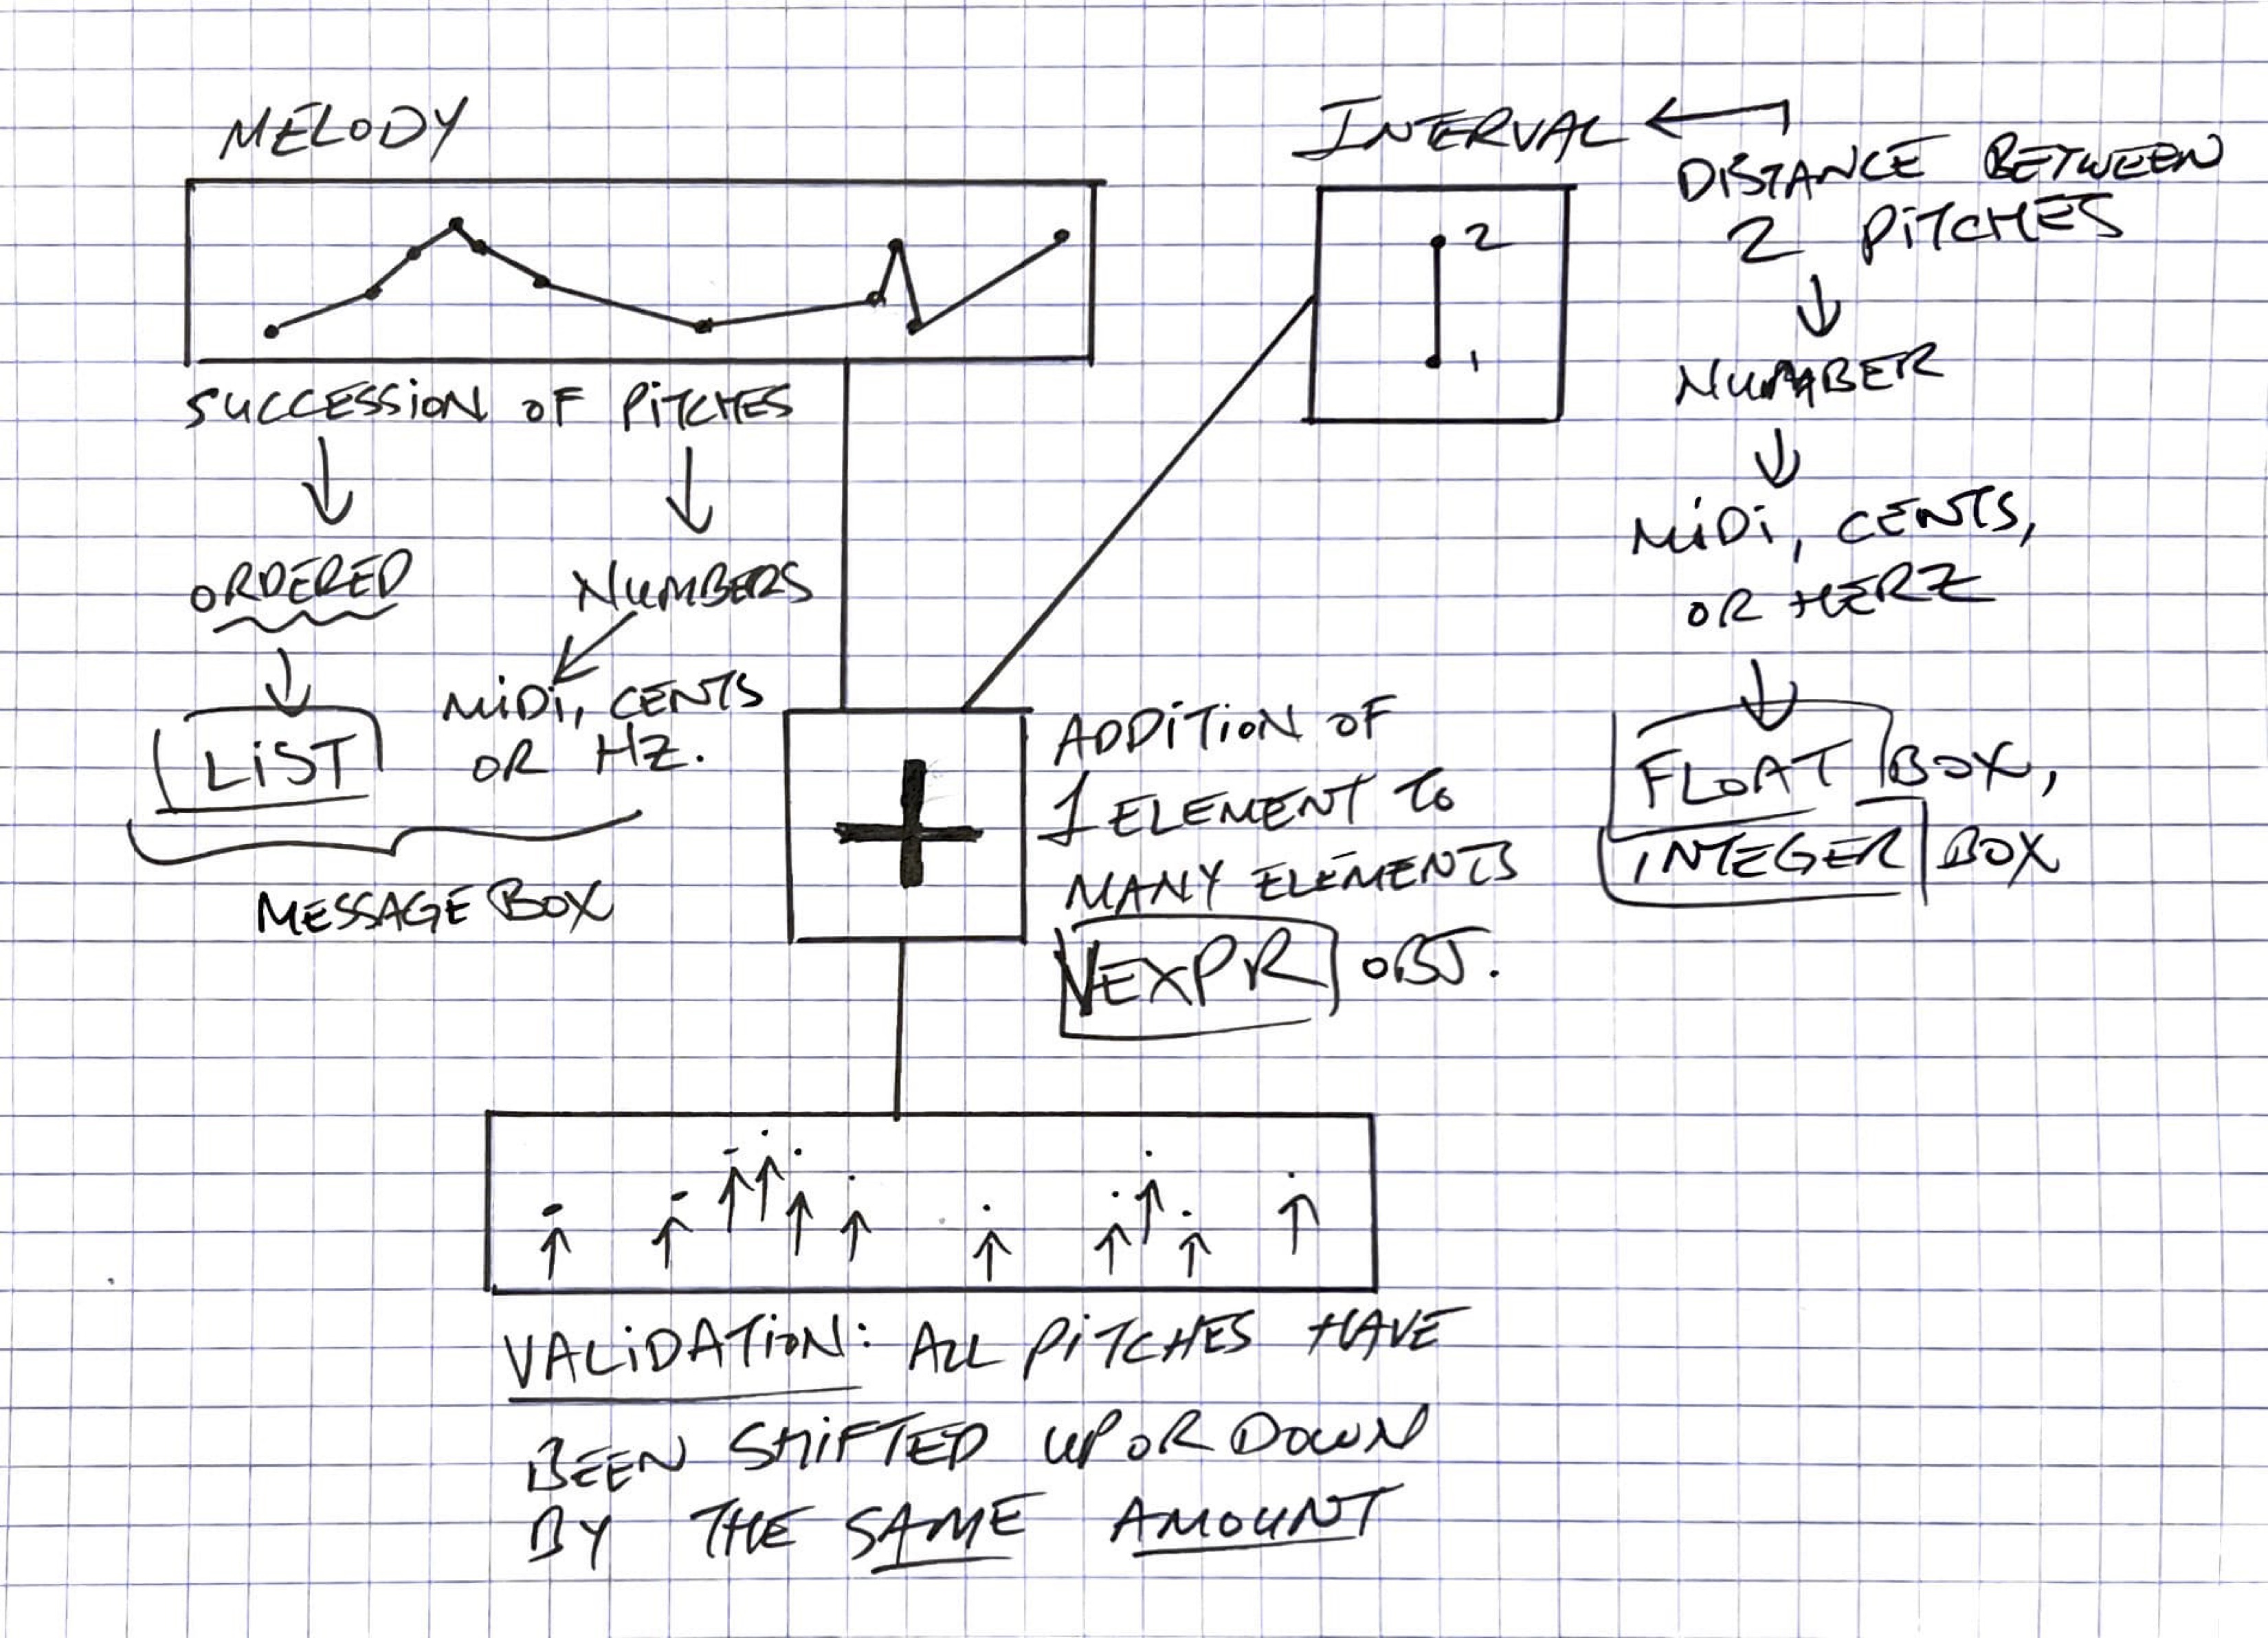 MELODY
SUCCESSION OF PITCHES
ORDERED
NUMBERS
LIST
MIDI, CENTS
OR HZ.
MESSAGE BOX
INTERVAL
2
1
DISTANCE BETWEEN
2 PITCHES
NUMBER
MIDI, CENTS,
OR HERZ
FLOAT BOX,
INTEGER BOX
+
ADDITION OF
1 ELEMENT TO
MANY ELEMENTS
VEXPR OBJ.
VALIDATION: ALL PITCHES HAVE
BEEN SHIFTED UP OR DOWN
BY THE SAME AMOUNT